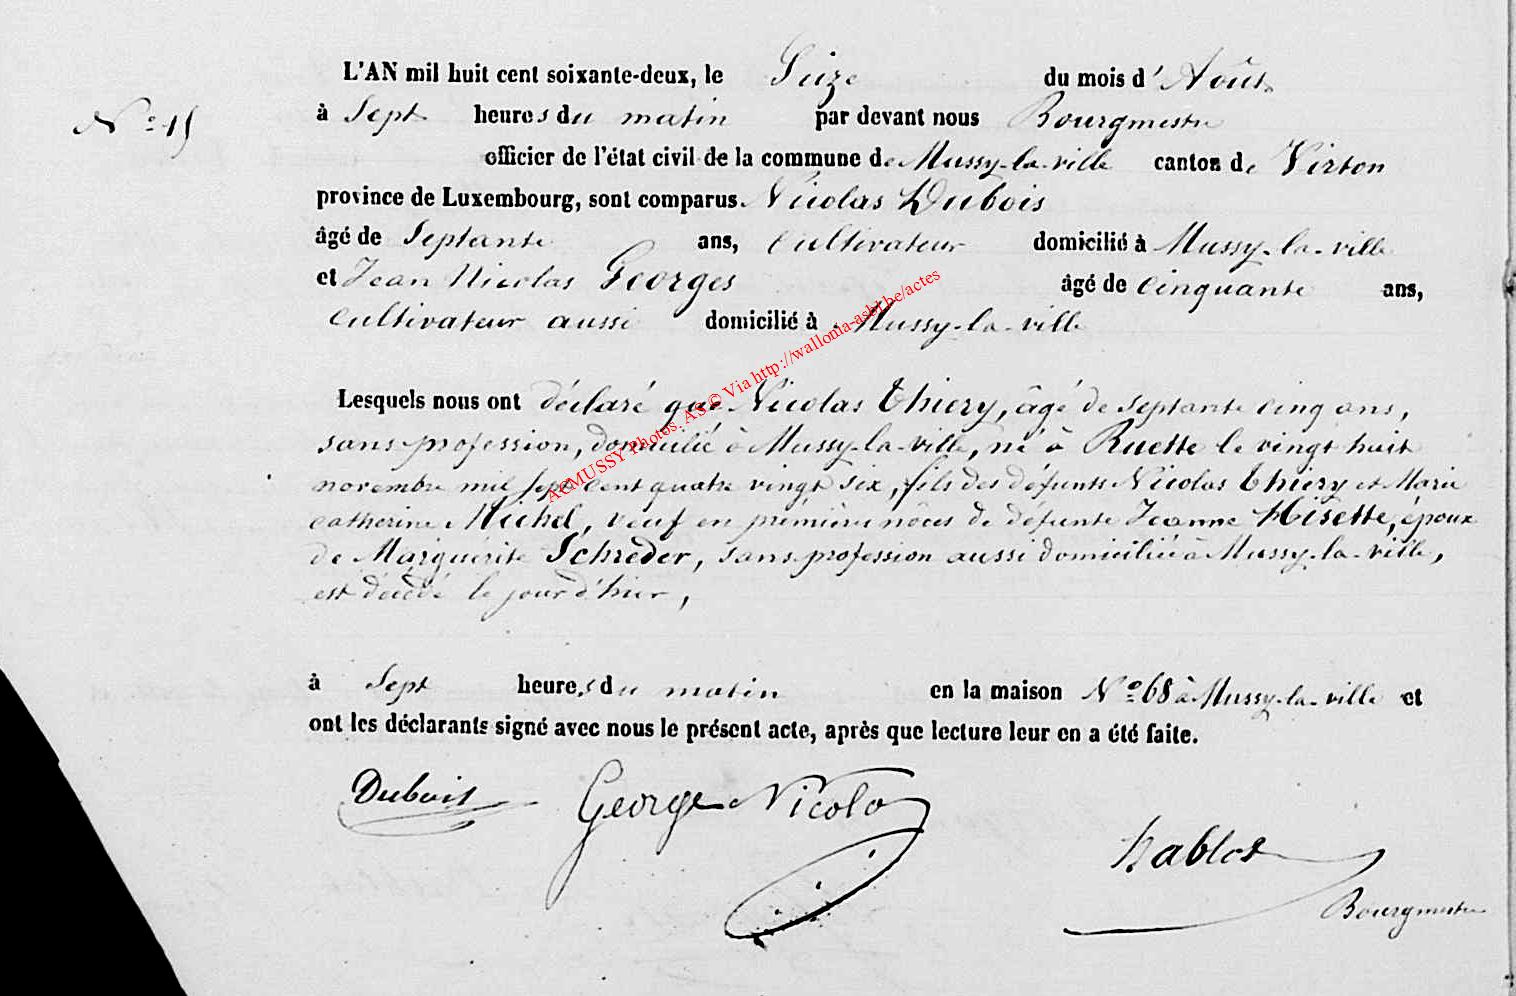 L'AN mil huit cent soixante-deux, le Seize du mois d'Août
N° 15
à Sept heures du matin par devant nous Bourgmestre
officier de l'état civil de la commune de Mussy-la-ville canton de Virton
province de Luxembourg, sont comparus Nicolas Dubois
âgé de Septante ans, Cultivateur domicilié à Mussy-la-ville
et Jean Nicolas Georges âgé de Cinquante ans,
Cultivateur aussi domicilié à Mussy-la-ville
Lesquels nous ont déclaré que Nicolas Thiery, âgé de septante cinq ans,
sans profession, domicilié à Mussy-la-ville, né à Ruette le vingt huit
novembre mil sept cent quatre vingt six, fils des défunts Nicolas Thiery et Marie
Catherine Michel, veuf en première nôces de défunte Jeanne Hisette, époux
de Marguérite Schreder, sans profession aussi domiciliée à Mussy-la-ville,
est décédé le jour d'hier,
à Sept heures du matin en la maison N° 68 à Mussy-la-ville et
ont les déclarants signé avec nous le présent acte, après que lecture leur en a été faite.
Dubois George Nicola
Bourgmestre
ACMUSSY Photos. AS © Via http://wallonia-asbl.be/actes